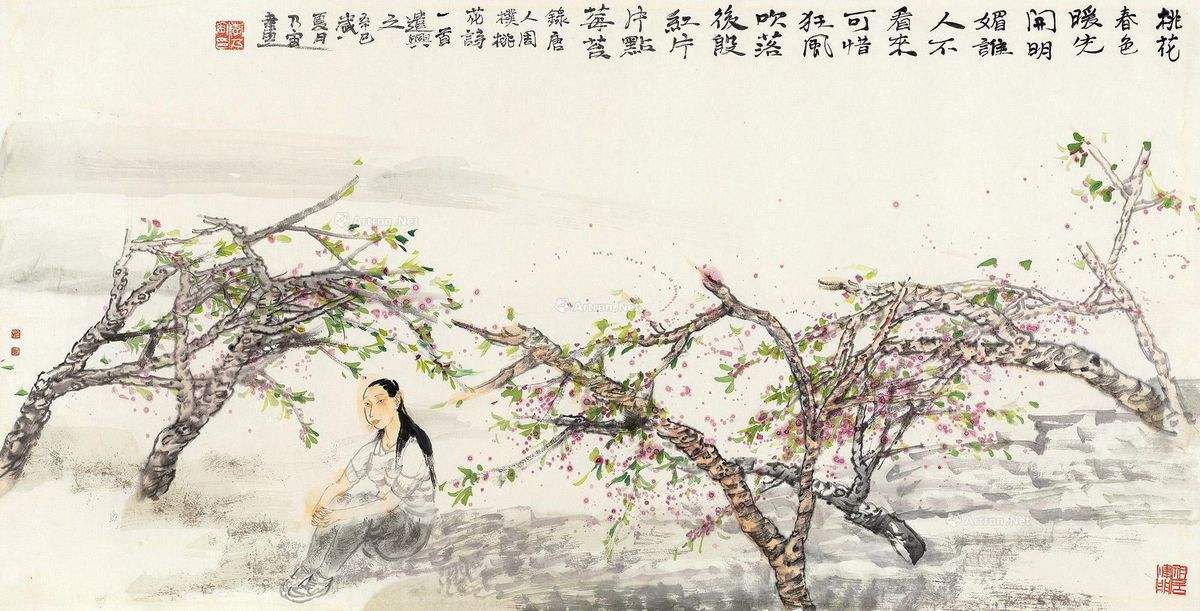 桃花
春色
暖先
開明
媚誰
人不
看來
可惜
狂風
吹落
後殷
紅片
片點
莓苔
錄唐
人周
撲桃
花詩
一首
遣興
之
辛巳
歲
夏月
乃宙
Artron.Net
Artron.Net
Artron.Net